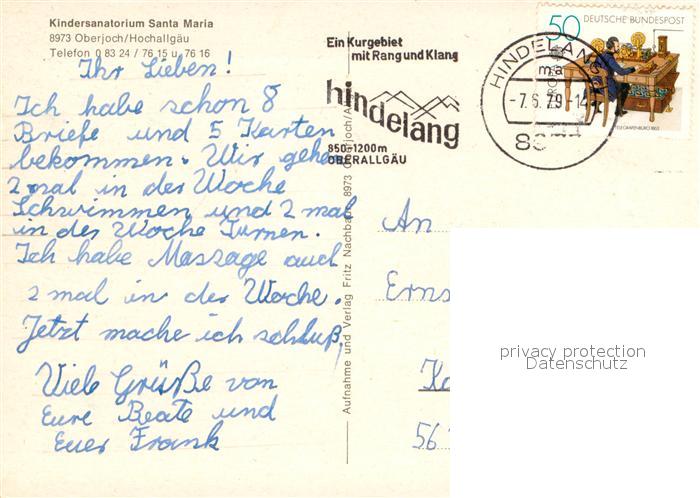 Kindersanatorium Santa Maria
8973 Oberjoch/Hochallgäu
Telefon 0 83 24 / 76 15 u. 76 16
Ihr Lieben!
Ich habe schon 8
Briefe und 5 Karten
bekommen. Wir gehen
2 mal in der Woche
Schwimmen und 2 mal
in der Woche Turnen.
Ich habe Massage auch
2 mal in der Woche.
Jetzt mache ich schluß.
Viele Grüße von
Eure Beate und
Euer Frank
Aufnahme und Verlag Fritz Nachbar, 8973
Ein Kurgebiet
mit Rang und Klang
hindelang
850-1200m
OBERALLGÄU
HINDELANG
ma
-7.6.79-14
50 DEUTSCHE BUNDESPOST
An
Erns
56
privacy protection
Datenschutz